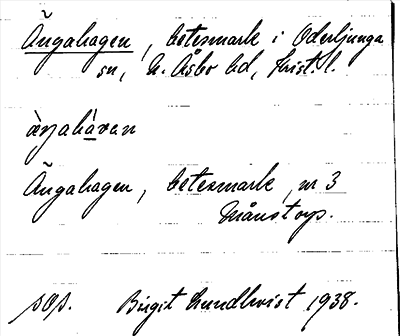 Ängahagen, betesmark i Oderljunga
sn, N. Åsbo hd, Krist. l.
àŋahàvan
Ängahagen, betesmark, nr 3
Månstorp.
sap. Birgit Lundkvist 1938.